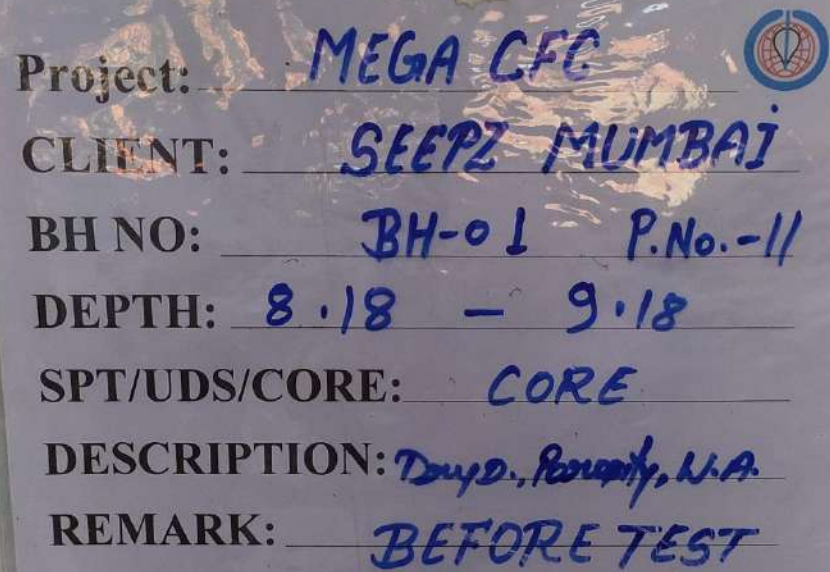 Project: MEGA CFC
CLIENT: SEEPZ MUMBAI
BH NO: BH-01 P.No.-11
DEPTH: 8.18 - 9.18
SPT/UDS/CORE: CORE
DESCRIPTION: Dry D., Porosity, W.A.
REMARK: BEFORE TEST